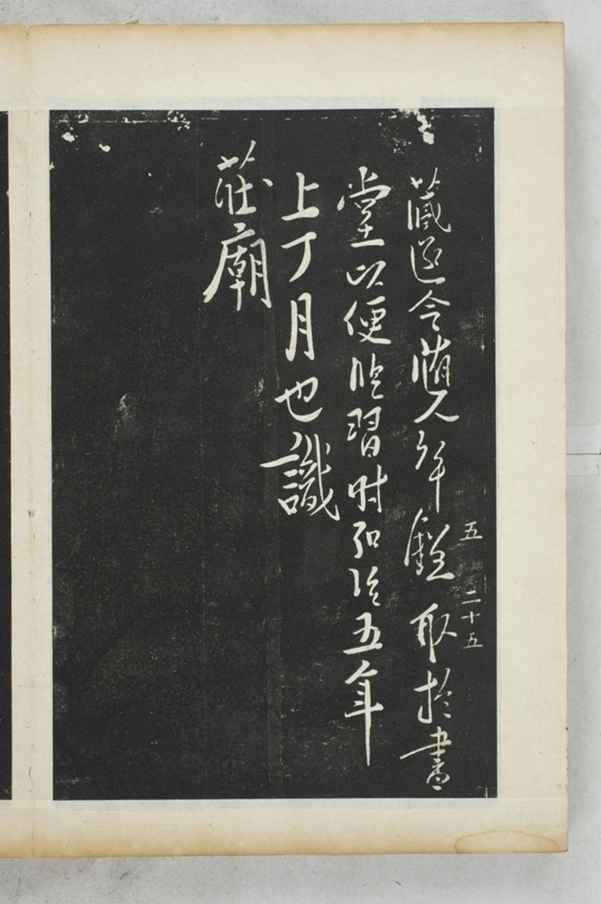 五 二十五
藏 今 取於書
堂以便臨習時弘治五年
上丁月也識
莊廟